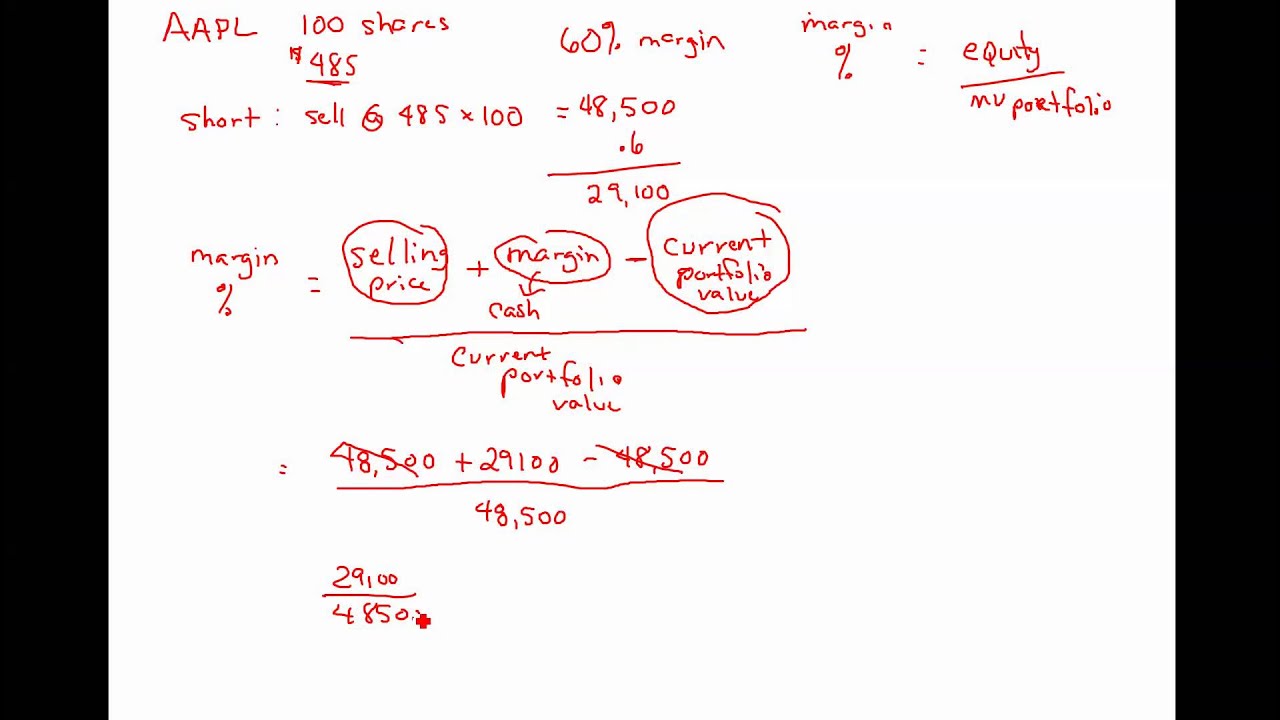 AAPL 100 shares
$485
60% margin
margin % = equity
mv portfolio
short : sell @ 485 × 100 = 48,500
.6
29,100
margin % = selling price + margin - current portfolio value
cash
current portfolio value
= 48,500 + 29100 - 48,500
48,500
29,100
4850